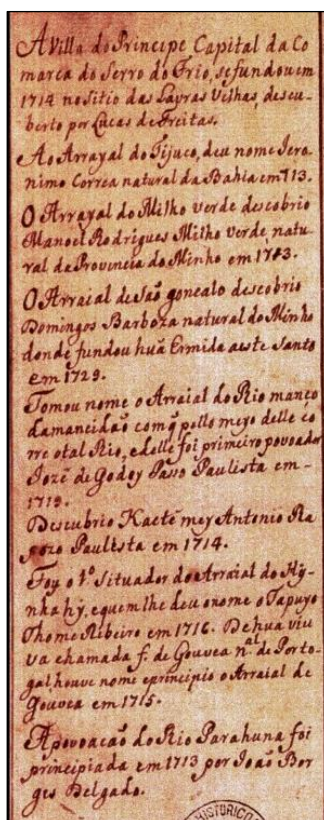 A Villa do Principe Capital da Co
marca do Serro do Frio, se fundou em
1714 no Sitio das Lavras Velhas, descu-
berto por Lucas de Freitas.
Ao Arrayal do Tijuco, deu nome Jero-
nimo Correa natural da Bahia em 713.
O Arrayal do Milho verde descobrio
Manoel Rodrigues Milho verde, natu-
ral da Provencia do Minho em 1713.
O Arraial de São gonçalo descobrio
Domingos Barboza natural do Minho
donde fundou huã Ermida a este Santo
em 1729.
Tomou nome o Arraial do Rio manço
da mancidaõ com q̃ pello meyo delle co
rre o tal Rio, e delle foi primeiro povoador
Jozê de Godoy Passo Paulista em -
1719.
Descubrio Kaetê mey Antonio Ra
pozo Paulista em 1714.
Foy o 1º Situador do Arraial do Hy-
nhahy, e quem lhe deu o nome o Tapuyo
Thome Ribeiro em 1716. De hua viu
va chamada f. de Gouvea n.al de Porto-
gal houve nome e principio o Arraial de
Gouvea em 1715.
A povoacaõ do Rio Parahuna foi
principiada em 1713 por Joaõ Bor
ges Delgado.
HISTORICO